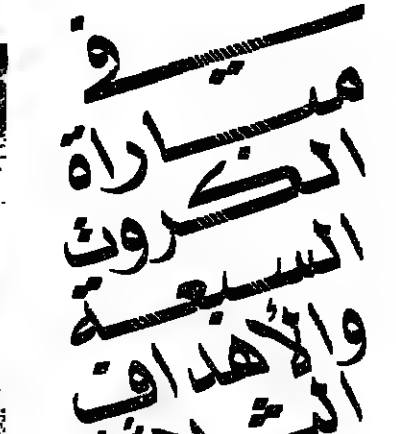 في
مباراة
الكروت
السبعة
والأهداف